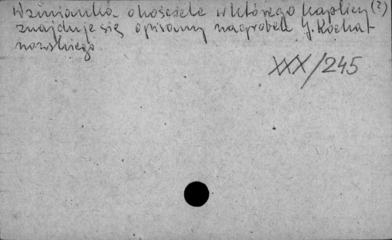 Wzmianka o kościele w którego kaplicy (?)
znajduje się opisany nagrobek J. Kocha-
nowskiego
XXX/245